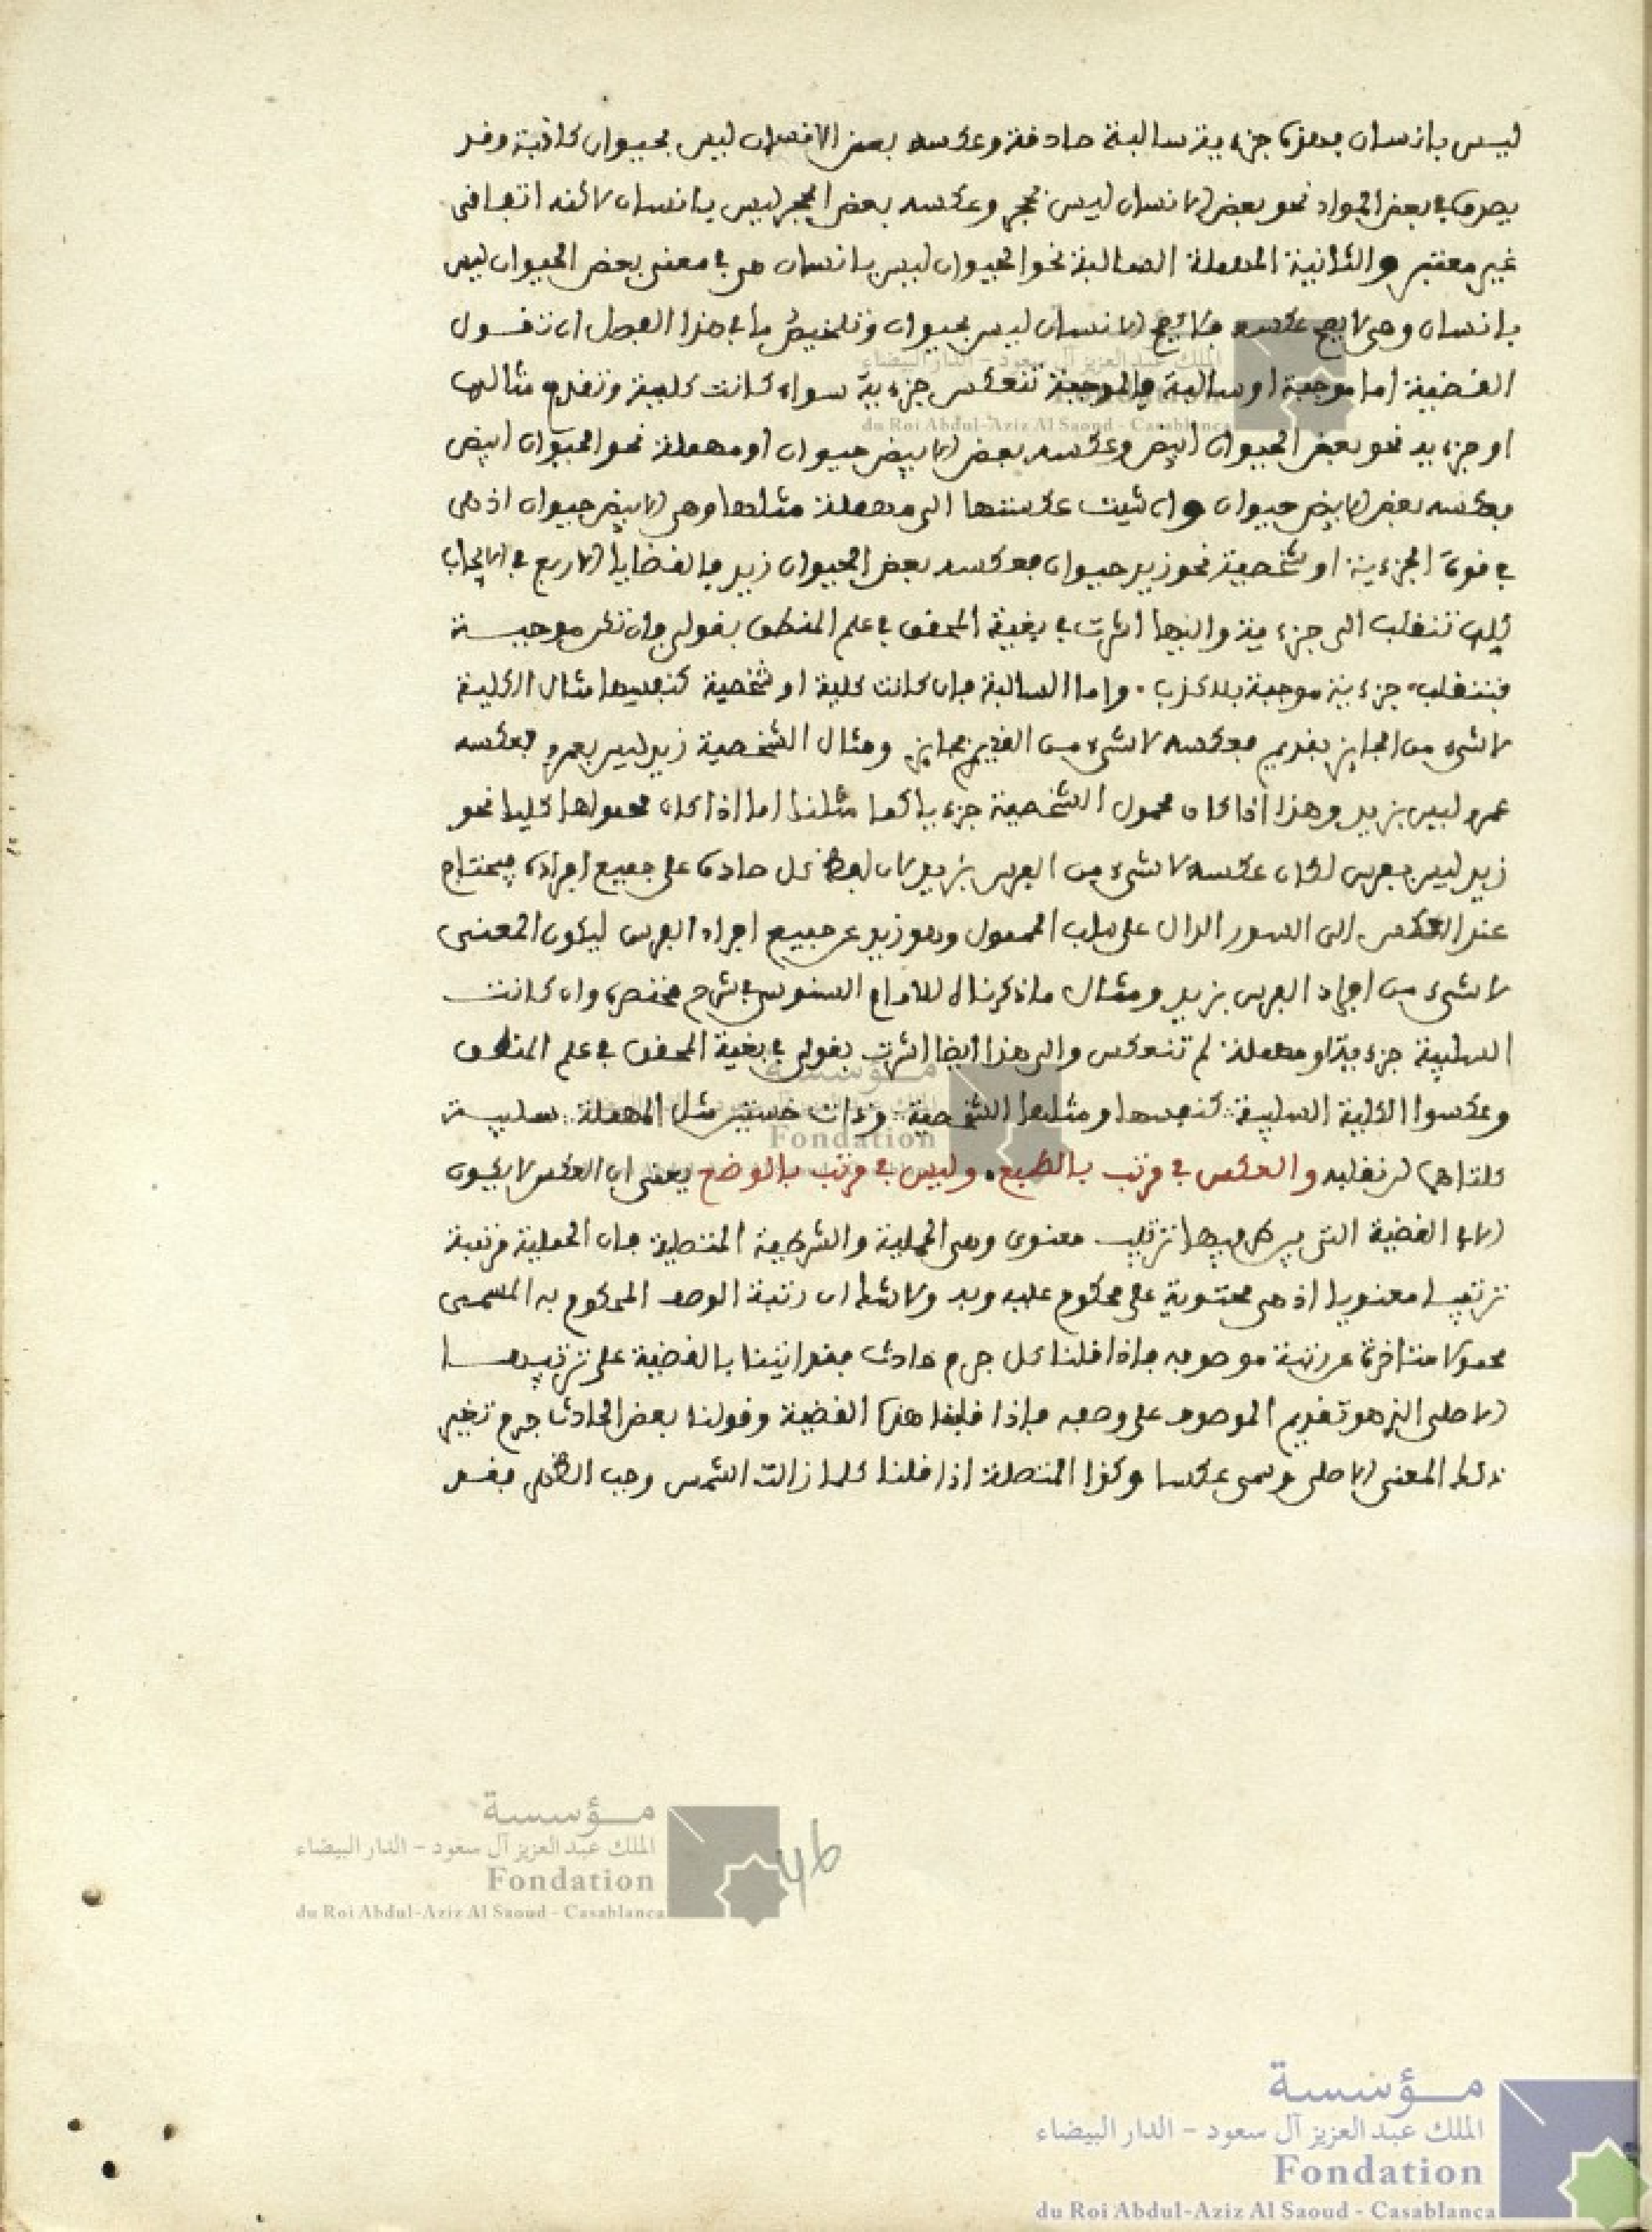 ليس بانسان فهذه جزءية سالبة صادقة وعكسه بعض الانسان ليس بحيوان كاذبة وقد
يصدق في بعض المواد نحو بعض الانسان ليس بحجر وعكسه بعض الحجر ليس بانسان لاكنه اتفاقي
غير معتبر والثانية المهملة السالبة نحو الحيوان ليس بانسان هي في معنى بعض الحيوان ليس
بانسان وهي لا يصح عكسه فلا يصح الانسان ليس بحيوان وتلخيص ما في هذا الفصل ان تقول
القضية اما موجبة او سالبة فالموجبة تنعكس جزءية سواء كانت كلية وتقدم مثالها
او جزءية نحو بعض الحيوان ابيض وعكسه بعض الابيض حيوان او مهملة نحو الحيوان ابيض
فعكسه بعض الابيض حيوان وان شيت عكستها الى مهملة مثلها وهي الابيض حيوان اذ هي
في قوة الجزءية او شخصية نحو زيد حيوان فعكسه بعض الحيوان زيد فالقضايا الاربع في الايجاب
تنقلب الى جزءية واليها اشرت في بغية المحقق في علم المنطق بقولي وان تكن موجبة
فتنقلب جزءية موجبة بلا كذب . واما السالبة فان كانت كلية او شخصية كنفسها مثال الكلية
لا شيء من الجايز بقديم فعكسه لا شيء من القديم بجايز ومثال الشخصية زيد ليس بعمرو فعكسه
عمرو ليس بزيد وهذا اذا كان محمول الشخصية جزءيا كما مثلنا اما اذا كان محمولها كليا نحو
زيد ليس بفرس لكان عكسه لا شيء من الفرس بزيد لان لفظ كل صادق على جميع افراده فيحتاج
عند العكس الى السور الدال على سلب المحمول وهو زيد عن جميع افراد الفرس ليكون المعنى
لا شيء من افراد الفرس بزيد ومثال ما ذكرناه للامام السنوسي في شرح مختصره وان كانت
السلبية جزءية او مهملة لم تنعكس والى هذا ايضا اشرت بقولي في بغية المحقق في علم المنطق
وعكسوا الكلية السلبية كنفسها ومثلها الشخصية وذات خستين مثل المهملة سلبية
كلتاهما لن تقلبه والعكس في مرتب بالطبع . وليس في مرتب بالوضع يعني ان العكس لا يكون
الا في القضية التي فيها ترتيب معنوي وهي الحملية والشرطية المتصلة فان الحملية مرتبة
ترتيبا معنويا اذ هي محتوية على محكوم عليه وبه ولا شك ان رتبة الوصف المحكوم به المسمى
محمولا متاخرة عن رتبة موصوفه فاذا قلنا كل جرم حادث فقد اتينا بالقضية على ترتيبها
الاصلي الذي هو تقديم الموصوف على وصفه فاذا قلبنا هذه القضية وقولنا بعض الحادث جرم تغير
ذلك المعنى الاصلي وسمي عكسا وكذا المتصلة اذا قلنا كلما زالت الشمس وجب الظهر فقد
46
مؤسسة
الملك عبد العزيز آل سعود - الدار البيضاء
Fondation
du Roi Abdul-Aziz Al Saoud - Casablanca
مؤسسة
الملك عبد العزيز آل سعود - الدار البيضاء
Fondation
du Roi Abdul-Aziz Al Saoud - Casablanca